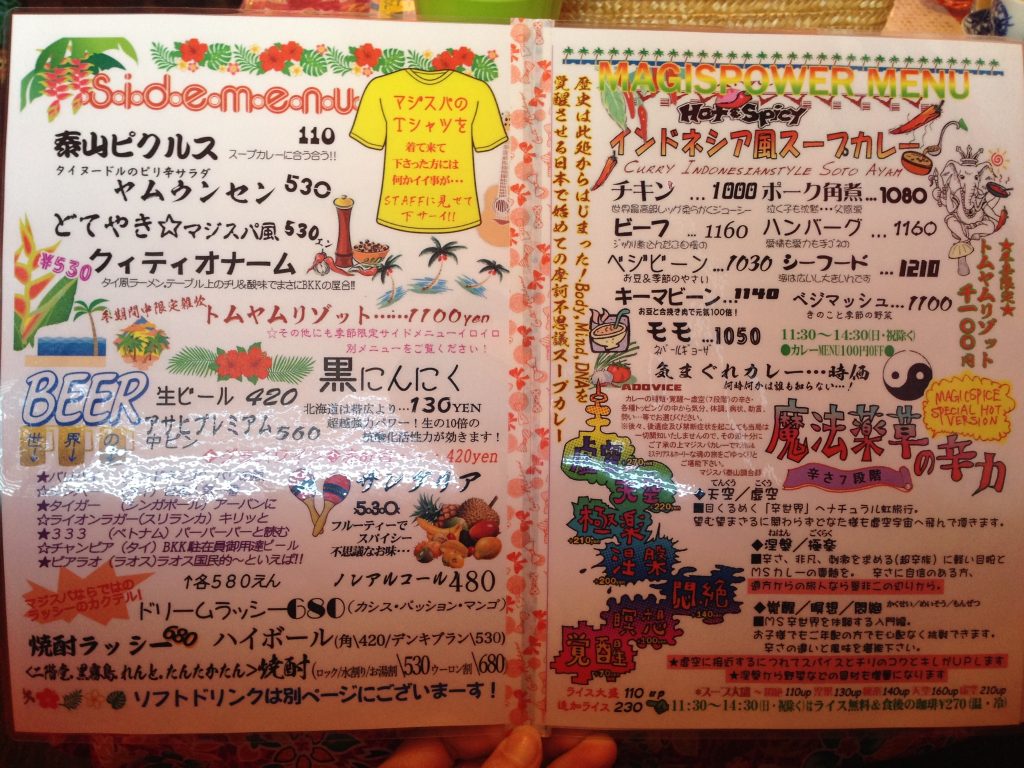 Sidemenu
泰山ピクルス 110
スープカレーに合う合う!!
タイヌードルのピリ辛サラダ
ヤムウンセン 530
どてやき☆マジスパ風 530
¥530 クィティオナーム
タイ風ラーメン。テーブル上のチリ&酸味でまさにBKKの屋台!!
トムヤムリゾット……1100yen
☆その他にも季節限定サイドメニューイロイロ
別メニューをご覧ください!
マジスパの
Tシャツを
着て来て
下さった方には
何かイイ事が…
STAFFに見せて
下サーイ!!
BEER
生ビール 420
アサヒプレミアム
中ビン 560
世界の
黒にんにく
北海道は帯広より…130YEN
超越強力パワー!生の10倍の
抗酸化活性力が効きます!
420yen
★タイガー (シンガポール) アーバンに
☆ライオンラガー(スリランカ) キリッと
★333 (ベトナム) バーバーバーと読む
☆チャンピア (タイ) BKK駐在員御用達ビール
★ビアラオ (ラオス) ラオス国民的〜といえば!!
↑各580えん
サングリア
530
フルーティーで
スパイシー
不思議なお味…
ノンアルコール480
マジスパならではの
ラッシーのカクテル!
ドリームラッシー680(カシス・パッション・マンゴ)
焼酎ラッシー680 ハイボール(角\420/デンキブラン\530)
<二階堂、黒霧島、れんと、たんたかたん>焼酎(ロック/水割り/お湯割\530ウーロン割\680)
ソフトドリンクは別ページにございまーす!
歴史は此処からはじまった!Body,Mind,DNAを
覚醒させる日本で始めての摩訶不思議スープカレー
MAGISPOWER MENU
Hot&Spicy
インドネシア風スープカレー
CURRY INDONESIANSTYLE SOTO AYAM
チキン …1000 ポーク角煮…1080
世界最高級レッグ柔らかくジューシー
ビーフ …1160 ハンバーグ …1160
ベジビーン…1030 シーフード …1210
お豆&季節のやさい
キーマビーン…1140 ベジマッシュ…1100
お豆と合挽き肉で元気100倍! きのこと季節の野菜
モモ …1050
ネパールギョーザ
11:30〜14:30(日・祝除く)
●カレーMENU100円OFF●
気まぐれカレー…時価
何時何かは誰も知らない…!
トムヤムリゾット
千一〇〇円
ADOVICE
カレーの種類・覚醒〜虚空(7段階)の辛さ・
各種トッピングの中から気分、体調、病状、助言、
勢い…等でお選びください。
※後々、後遺症及び禁断症状を起こしても当店は
一切関知いたしませんので、その節十分に
ご了承の上マジスパカレーでマジカル&
ミステリアス&ホーリーな魂の旅をごゆっくりと
ご堪能下さい。
MAGICSPICE
SPECIAL HOT
VERSION
魔法薬草の辛力
辛さ7段階
虚空
天空
220yen
極楽
210yen
涅槃
200yen
悶絶
140yen
瞑想
100yen
覚醒
70yen
てんくう こくう
◆天空/虚空
■目くるめく「辛世界」へナチュラル虹旅行。
望む望まざるに関わらずどなた様も虚空宇宙へ飛んで頂きます。
ねはん ごくらく
◆涅槃/極楽
■辛さ、非凡、刺激をまめる(超辛族)に軽い目眩と
MSカレーの真髄を。 辛さに自信のある方、
遠方からの旅人なら是非この辺りから。
かくせい/めいそう/もんぜつ
◆覚醒/瞑想/悶絶
■MS辛世界を体験する入門編。
お子様でもご年配の方でも心配なく挑戦できます。
辛さの違いと風味を堪能下さい。
★虚空に接近するにつれてスパイスとチリのコクとキレがUPします
★涅槃から野菜などの具材も増量になります
ライス大盛 110up
追加ライス 230
11:30〜14:30(日・祝除く)はライス無料&食後の珈琲¥270(温・冷)